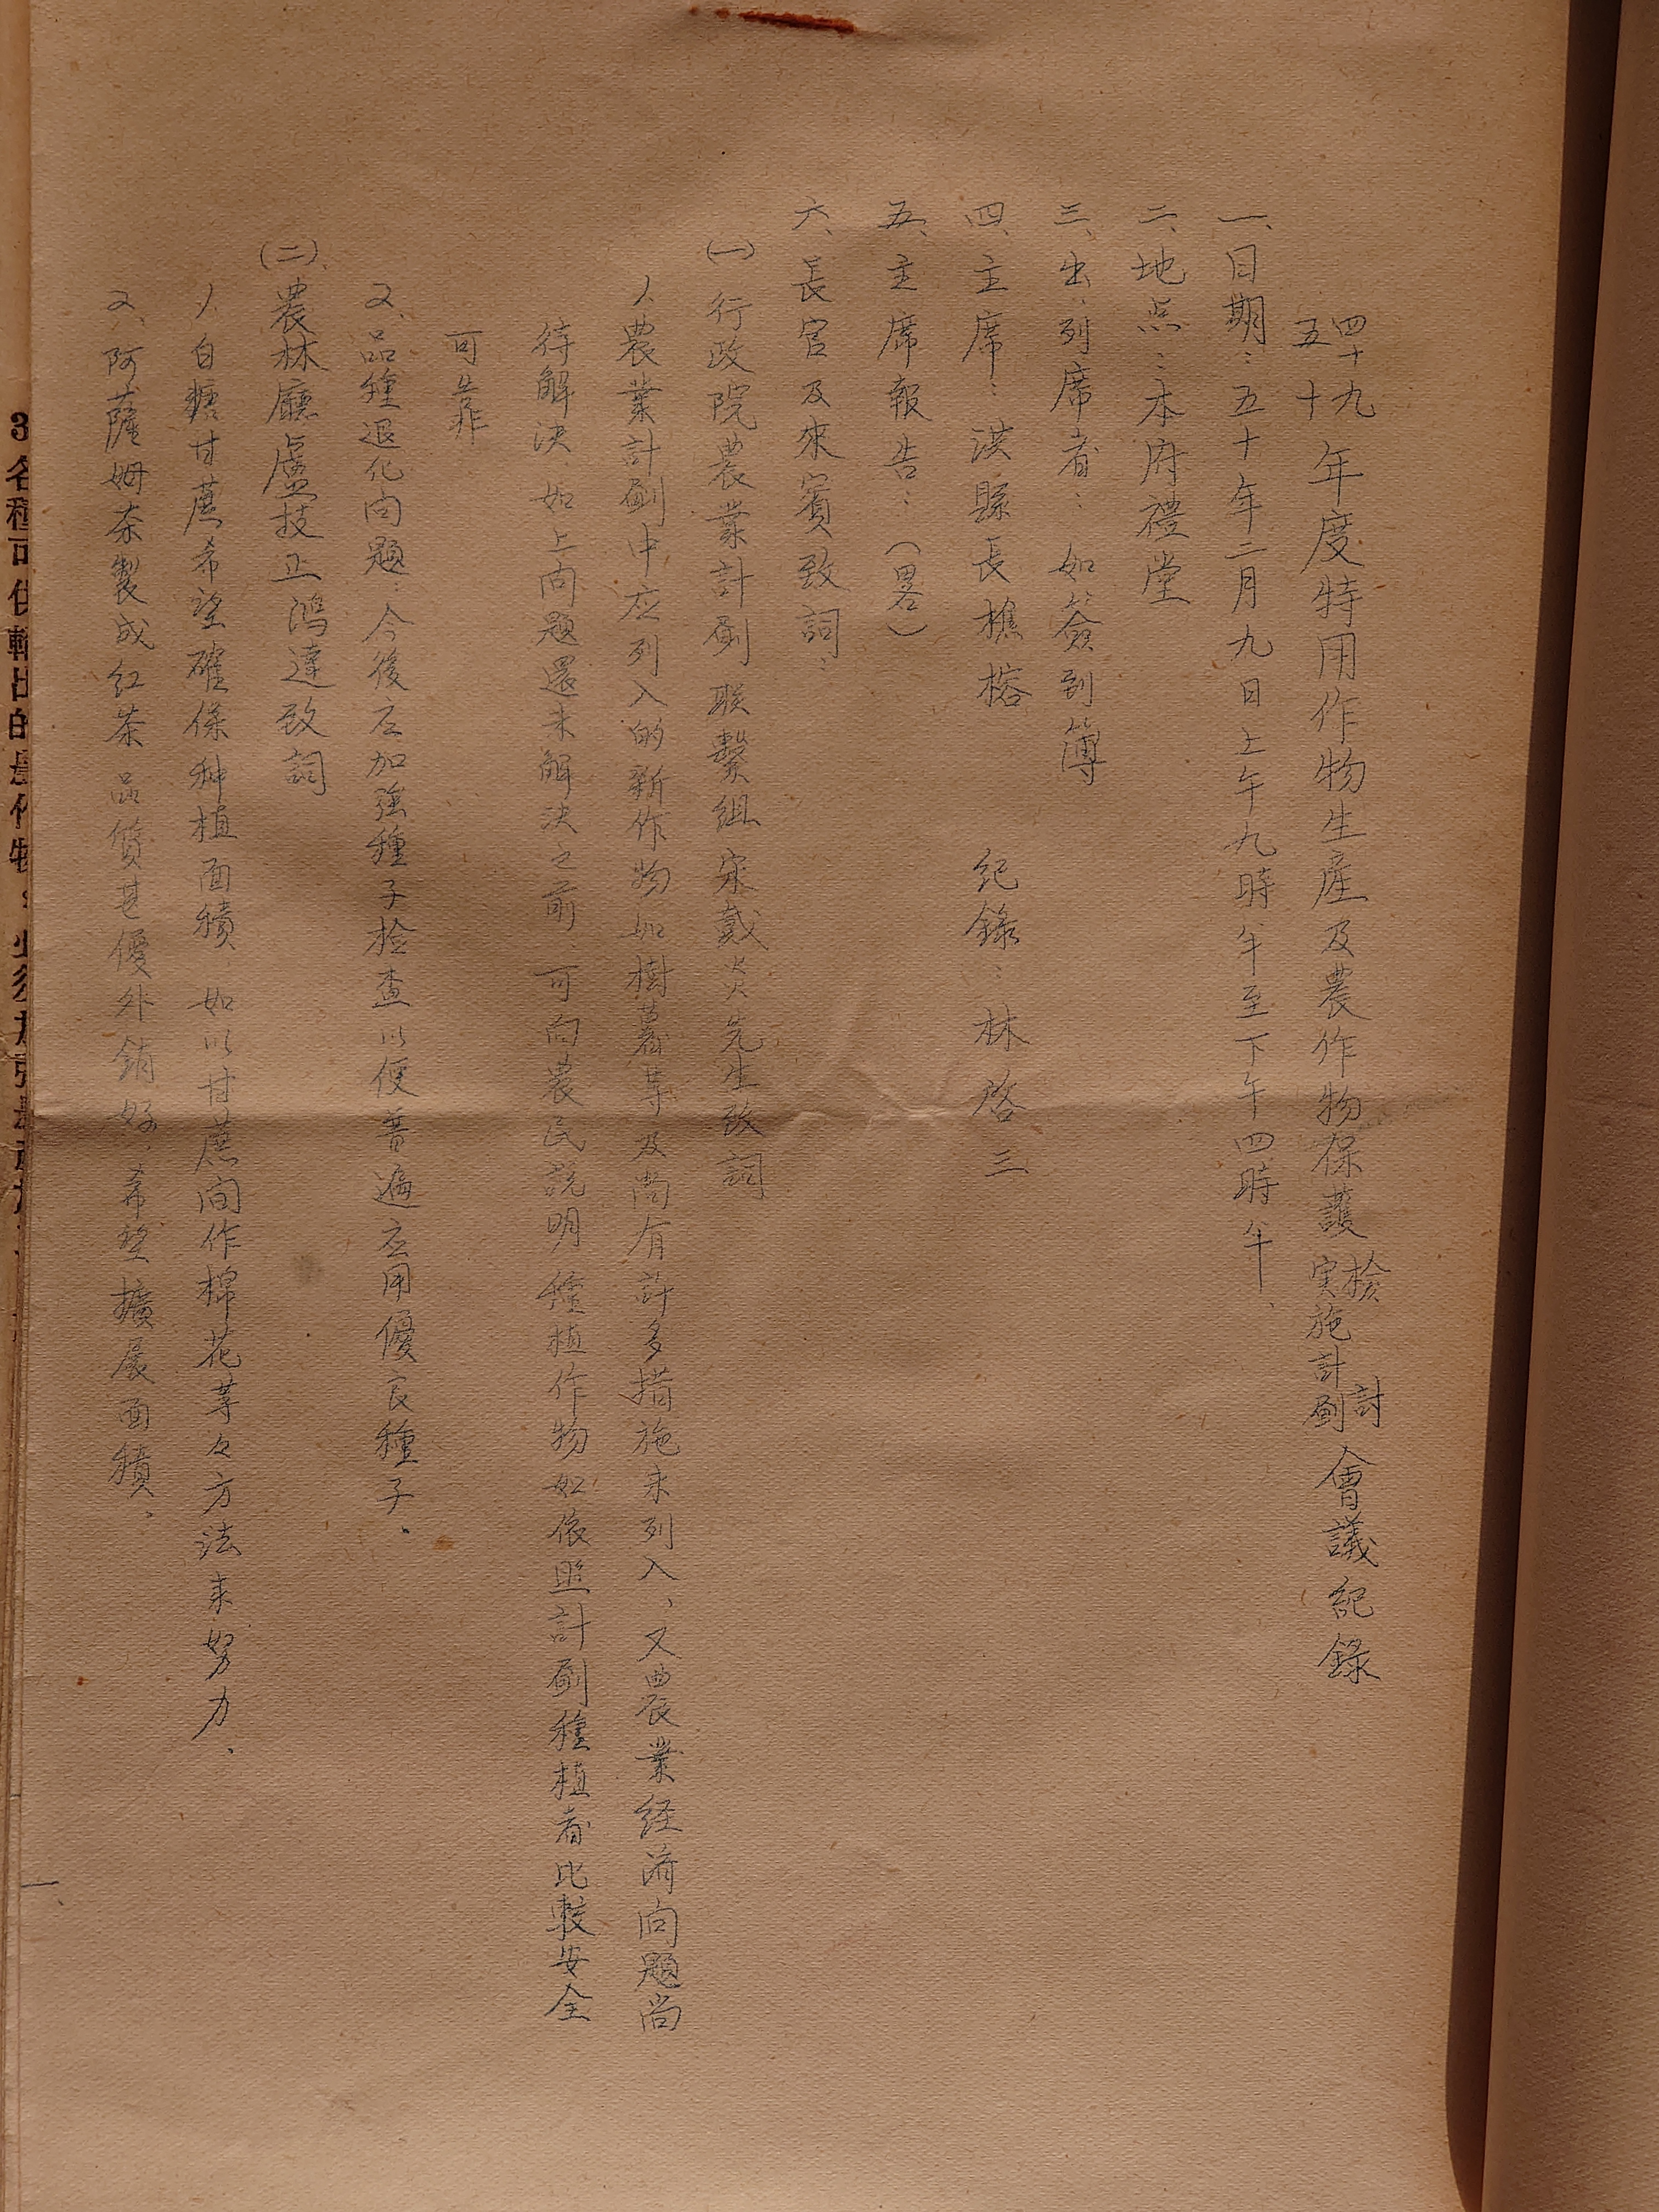 四十九
五十年度特用作物生產及農作物保護檢討
实施計劃會議紀錄
一、日期：五十年二月九日上午九時半至下午四時半、
二、地点：本府禮堂
三、出、列席者：如簽到簿
四、主席：洪縣長樵榕 紀錄：林啓三
五、主席報告：（畧）
六、長官及來賓致詞：
(一)行政院農業計劃联繫組宋戴炎先生致詞
1、農業計劃中应列入的新作物如樹薯等及尚有許多措施未列入、又農業经濟问題尚
待解決、如上问題還未解決之前可向農民説明種植作物如依照計劃種植者比較安全
可靠
2、品種退化问題、今後应加強種子检查以便普遍应用優良種子、
(二)、農林廳盧技正鴻達致詞
1、白糖甘蔗希望確保种植面積、如以甘蔗间作棉花等々方法来努力、
2、阿薩姆茶製成红茶品質甚優外銷好、希望擴展面積、
一
3各種可供輸出的